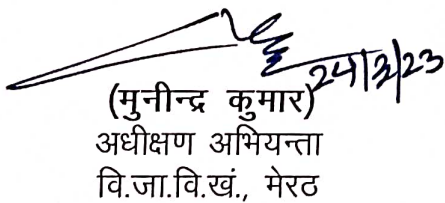 24/3/23
(मुनीन्द्र कुमार)
अधीक्षण अभियन्ता
वि.जा.वि.खं., मेरठ